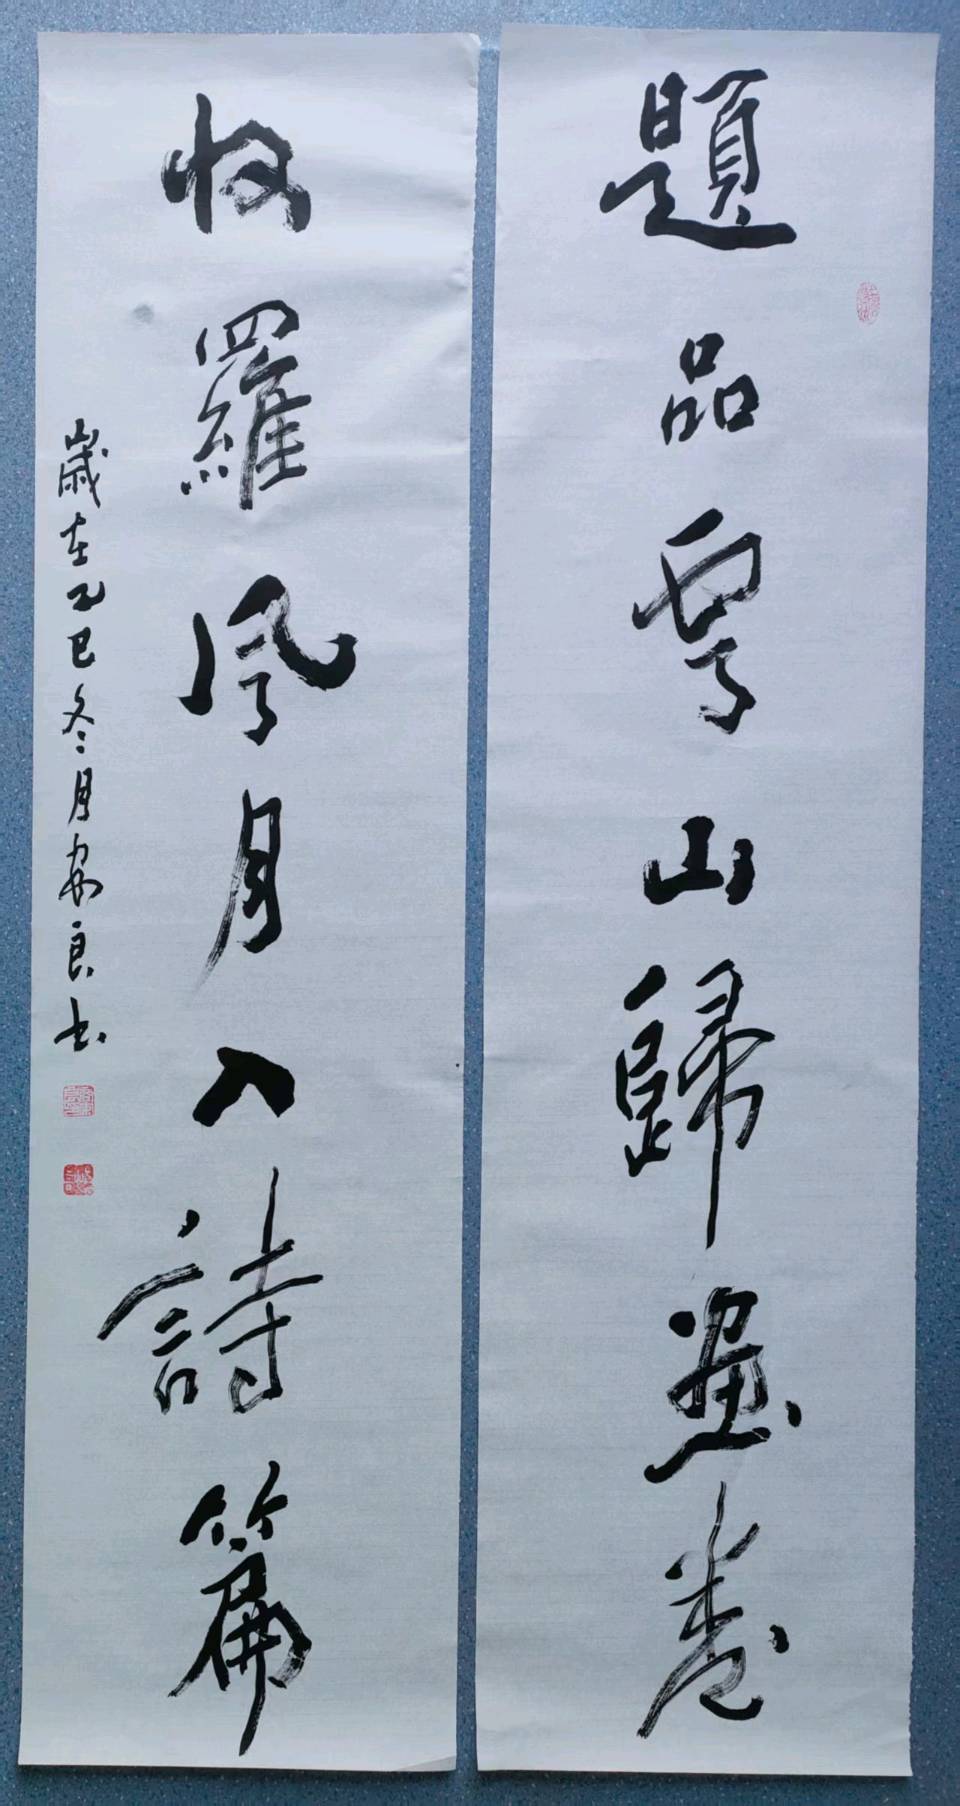 題品雲山歸畫卷
收羅風月入詩篇
歲在乙巳冬月安良书